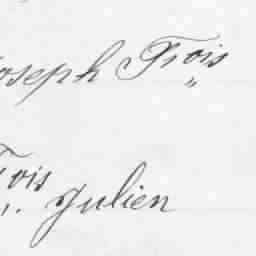 Joseph Frois
Frois Julien